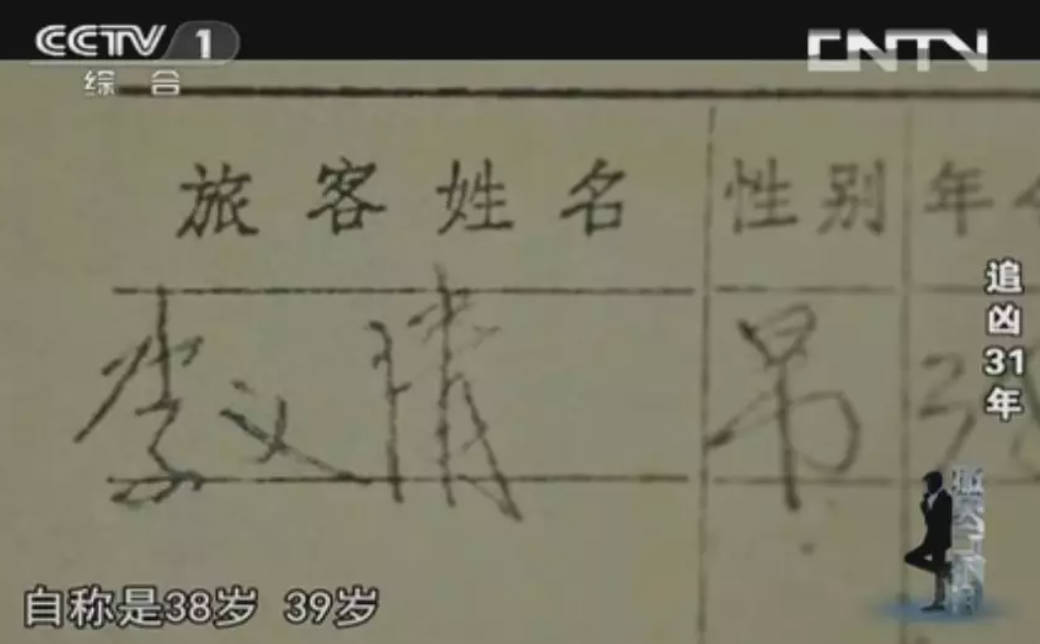 CCTV 1
综合
CNTV
旅客姓名 性别 年
李文清 男 3
追凶31年
自称是38岁 39岁